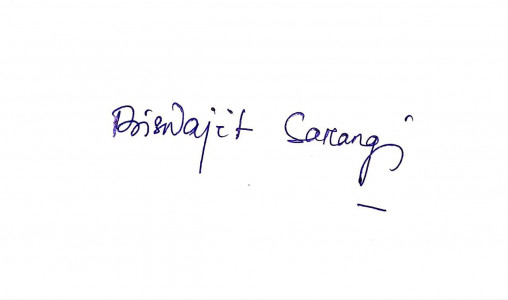 Biswajit Sarangi